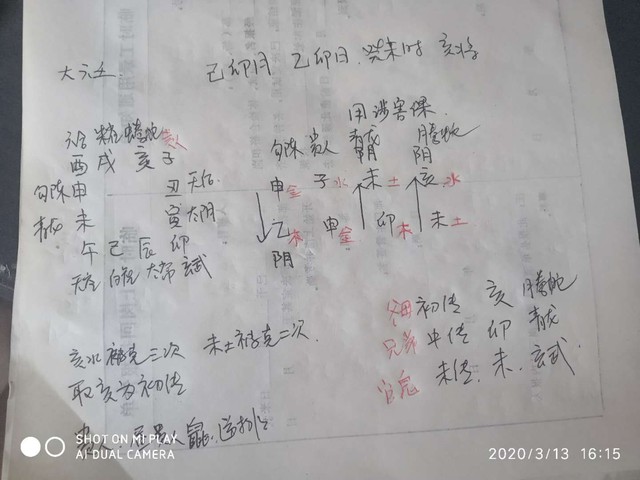 大六壬 己卯月 乙卯日 癸未时 亥将
用涉害课
六合 朱雀 螣蛇 贵人 勾陈 贵人 青龙 螣蛇
酉 戌 亥 子 阴 阴
勾陈 申 丑 天后 申金 子水 未土 亥水
青龙 未 寅 太阴
乙木 申金 卯木 未土
午 巳 辰 卯 阴
天空 白虎 太常 玄武
父母 初传 亥 螣蛇
兄弟 中传 卯 青龙
亥水被克三次 未土被克二次
官鬼 末传 未 玄武
取亥为初传
SHOT ON MI PLAY
AI DUAL CAMERA
2020/3/13 16:15